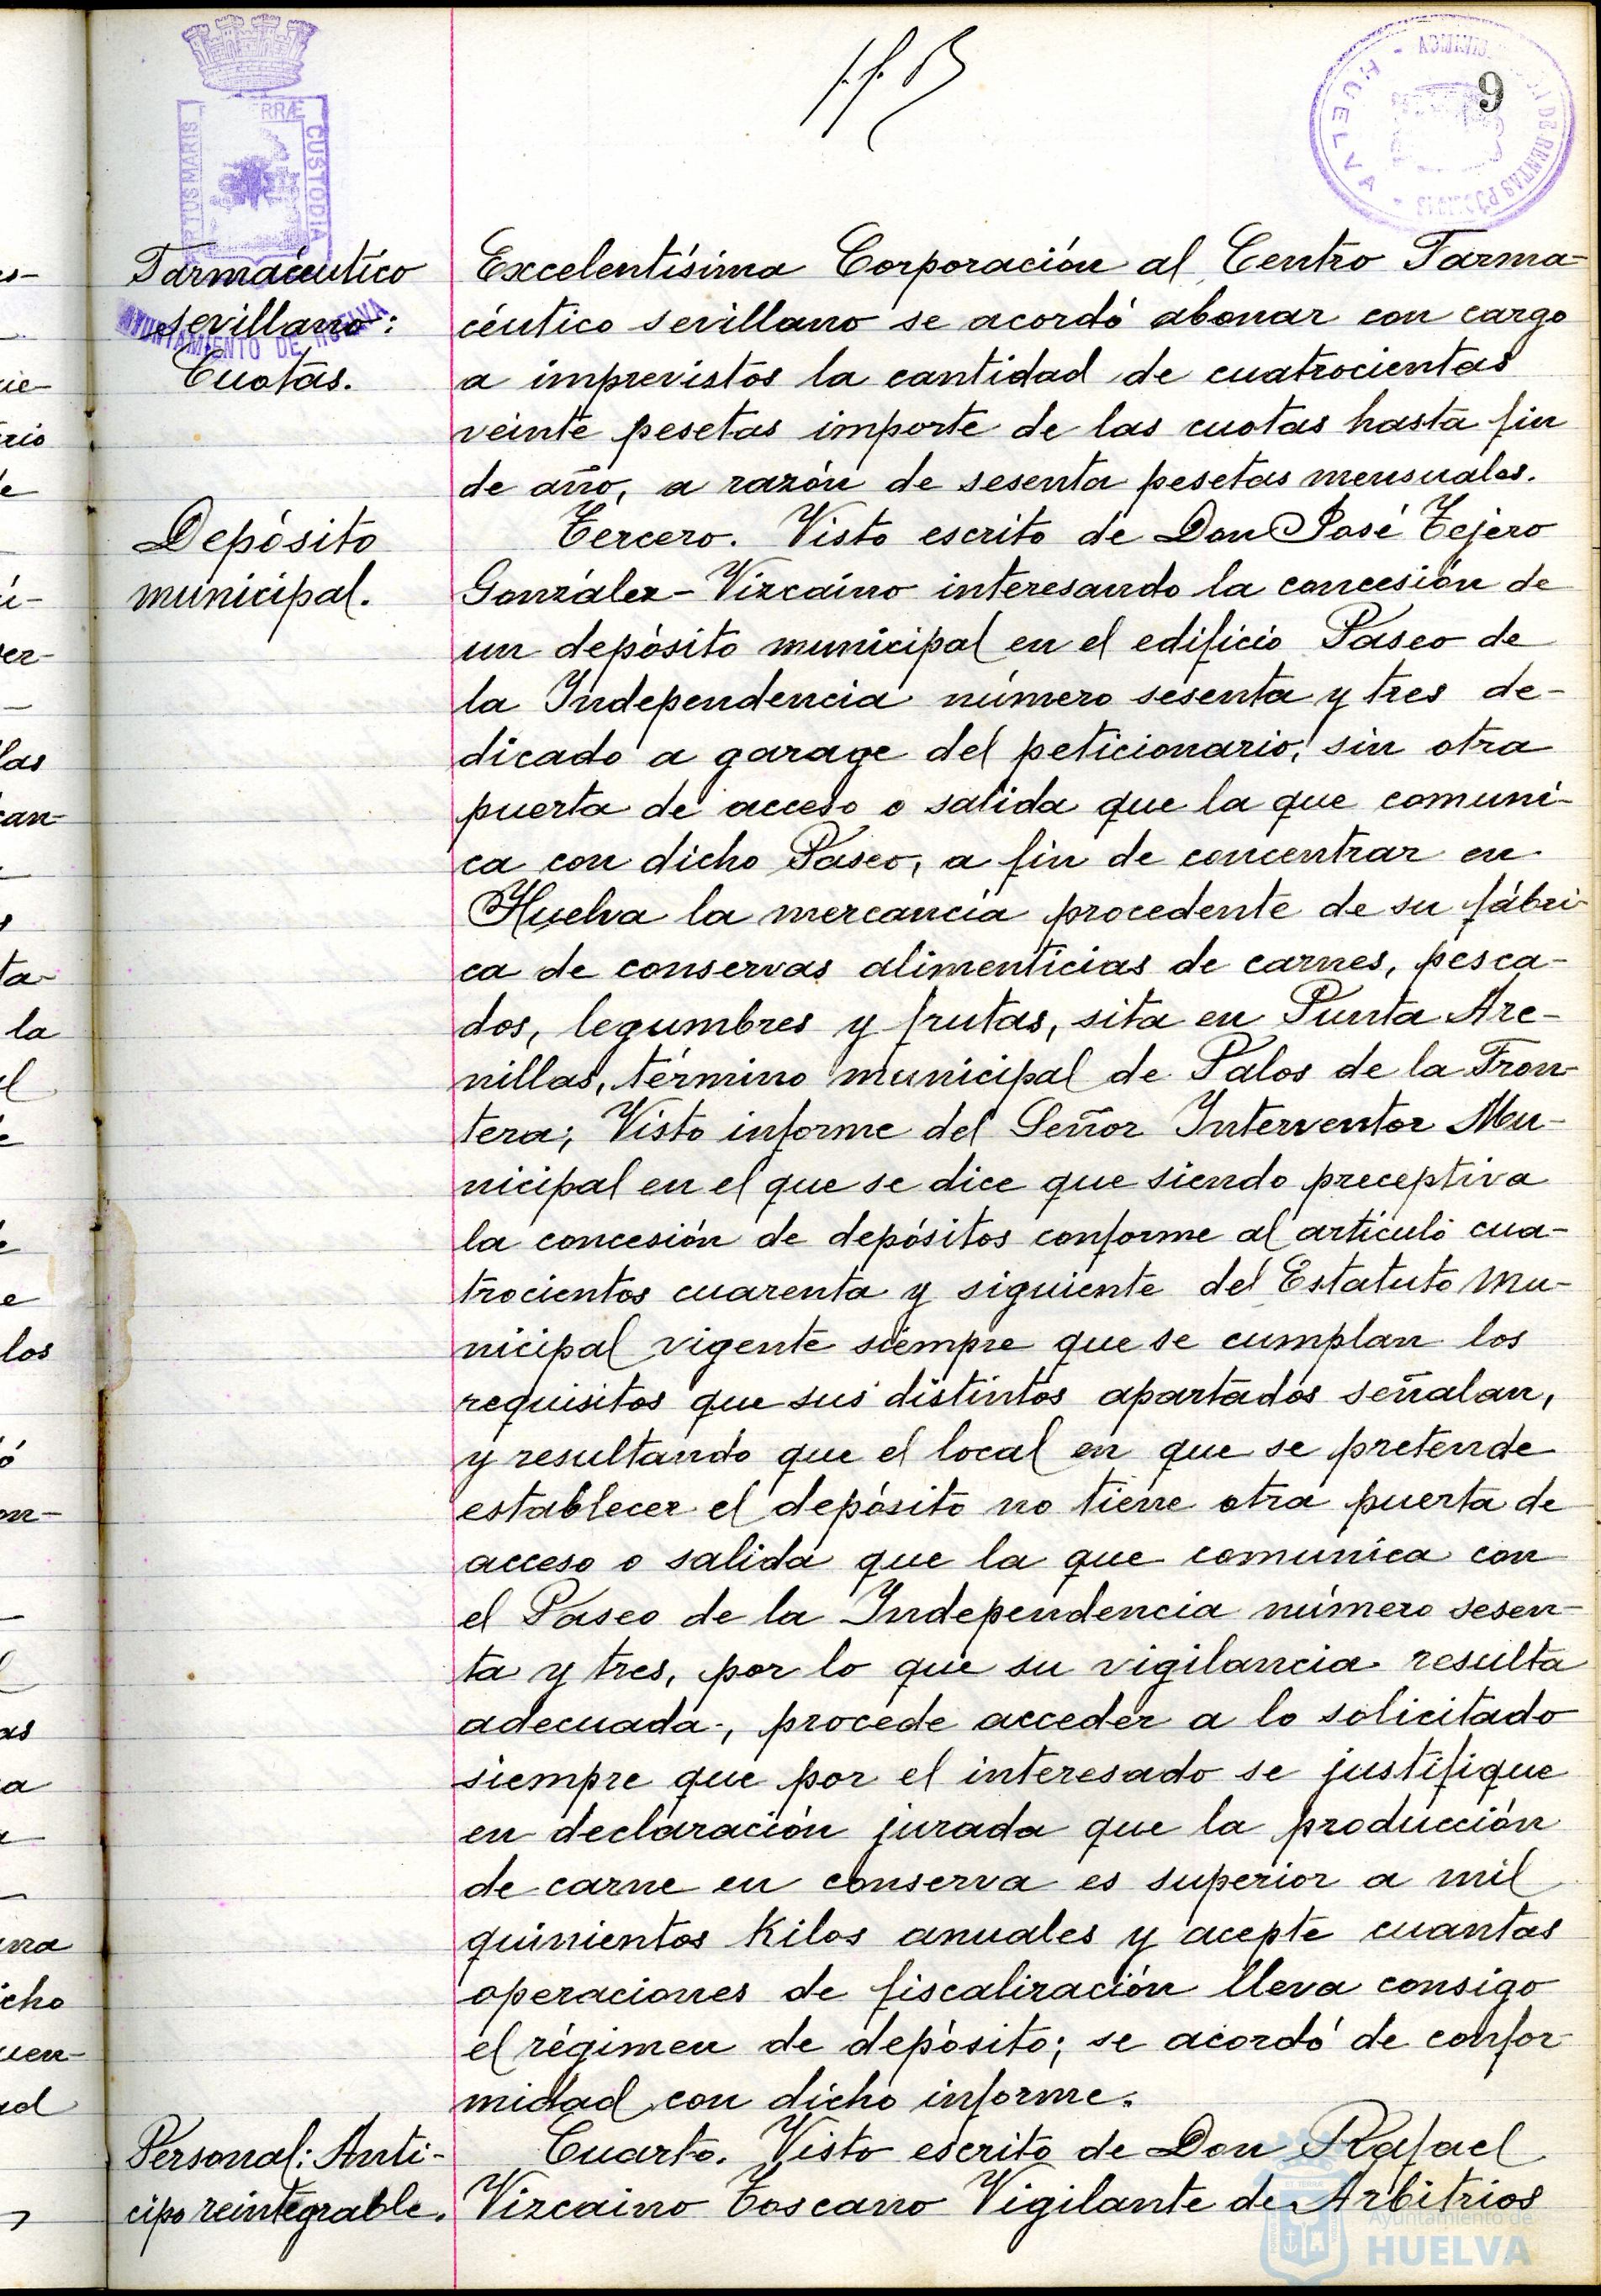 9
ADMINIS
DE RENTAS PÚBLICAS
HUELVA
RRÆ
CUSTODIA
PORTUS MARIS
AYUNTAMIENTO DE HUELVA
Farmacéutico
sevillano:
Cuotas.
Excelentísima Corporación al Centro Farma-
céutico sevillano se acordó abonar con cargo
a imprevistos la cantidad de cuatrocientas
veinte pesetas importe de las cuotas hasta fin
de año, a razón de sesenta pesetas mensuales.
Depósito
municipal.
Tercero. Visto escrito de Don José Tejero
González-Vizcaino interesando la concesión de
un depósito municipal en el edificio Paseo de
la Independencia número sesenta y tres de-
dicado a garage del peticionario, sin otra
puerta de acceso o salida que la que comuni-
ca con dicho Paseo, a fin de concentrar en
Huelva la mercancía procedente de su fábri-
ca de conservas alimenticias de carnes, pesca-
dos, legumbres y frutas, sita en Punta Are-
nillas, término municipal de Palos de la Fron-
tera; Visto informe del Señor Interventor Mu-
nicipal en el que se dice que siendo preceptiva
la concesión de depósitos conforme al artículo cua-
trocientos cuarenta y siguiente del Estatuto Mu-
nicipal vigente siempre que se cumplan los
requisitos que sus distintos apartados señalan,
y resultando que el local en que se pretende
establecer el depósito no tiene otra puerta de
acceso o salida que la que comunica con
el Paseo de la Independencia número sesen-
ta y tres, por lo que su vigilancia resulta
adecuada, procede acceder a lo solicitado
siempre que por el interesado se justifique
en declaración jurada que la producción
de carne en conserva es superior a mil
quinientos kilos anuales y acepte cuantas
operaciones de fiscalización lleva consigo
el régimen de depósito; se acordó de confor-
midad con dicho informe.
Personal: Anti-
cipo reintegrable.
Cuarto. Visto escrito de Don Rafael
Vizcaino Toscano Vigilante de Arbitrios
Ayuntamiento de
HUELVA